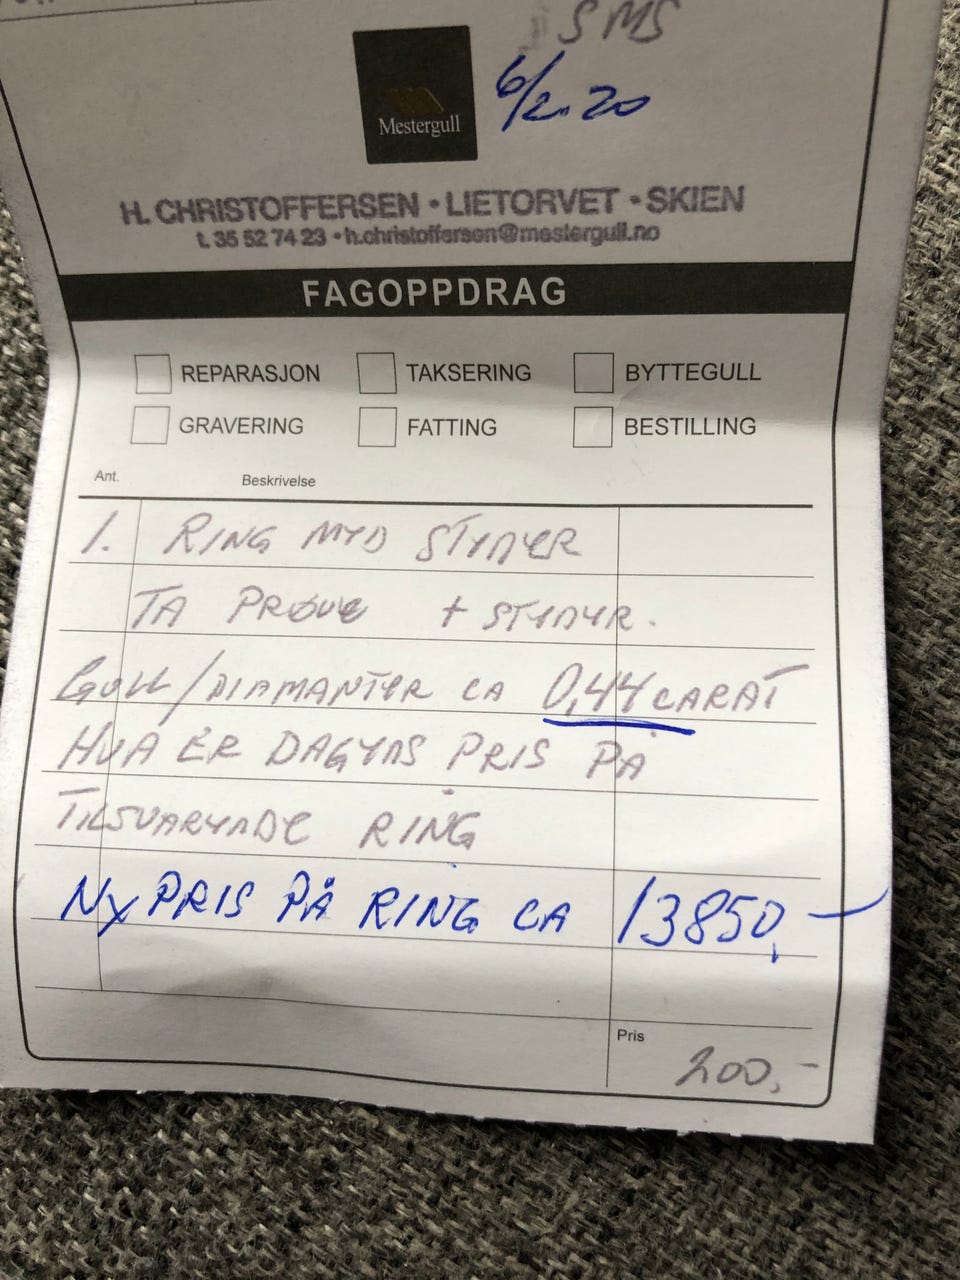 SMS
6/2.20
Mestergull
H. CHRISTOFFERSEN • LIETORVET • SKIEN
t. 35 52 74 23 • h.christoffersen@mestergull.no
FAGOPPDRAG
REPARASJON TAKSERING BYTTEGULL
GRAVERING FATTING BESTILLING
Ant. Beskrivelse
1. RING MED STENER
TA PRØVE + STENER.
GULL/DIAMANTER CA 0,44 CARAT
HVA ER DAGENS PRIS PÅ
TILSVARENDE RING
NY PRIS PÅ RING CA 13850,-
Pris
200,-